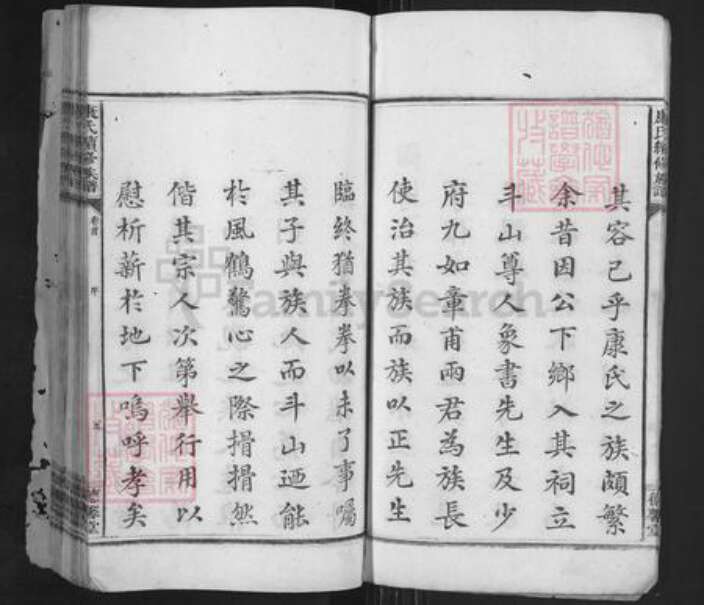 其容已乎康氏之族頗繁
余昔因公下鄉入其祠立
斗山尊人象書先生及少
府九如章甫兩君為族長
使治其族而族以正先生
臨終猶拳拳以未了事囑
其子與族人而斗山迺能
於風鶴驚心之際搰搰然
偕其宗人次第舉行用以
慰析薪於地下嗚呼孝矣
康氏續修族譜
卷首
序
五
FamilySearch